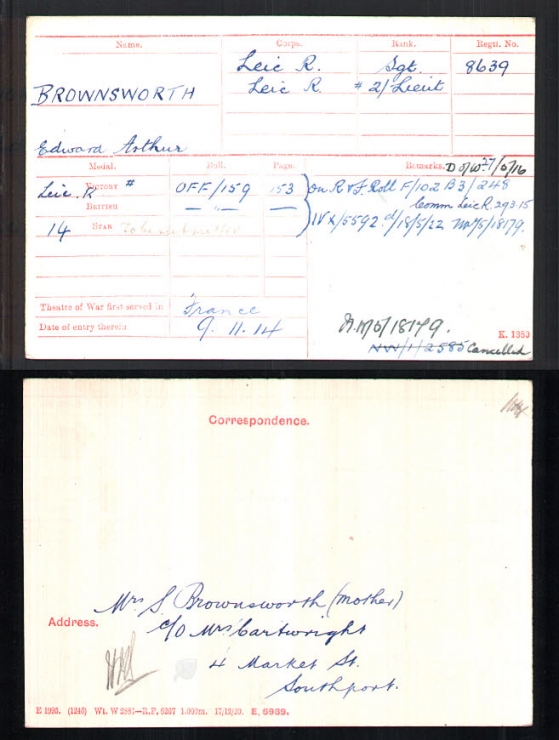 Name. Corps. Rank. Regtl. No.
Leic R. Sgt. 8639
BROWNSWORTH Leic R. # 2/Lieut
Edward Arthur
Medal. Roll. Page. Remarks. D of W 27/5/16
Leic. R VICTORY # OFF/159 153 On R & F Roll F/102 B3/248
BRITISH — " — Comm Leic R. 29.3.15
14 STAR To be submitted IVX/5592 d/18/5/22 NW/5/18179.
Theatre of War first served in France
Date of entry therein 9. 11. 14
N.W/5/18179. K. 1380
NW/1/2585 Cancelled
Correspondence.
Mrs S. Brownsworth (Mother)
Address. c/o Mrs Cartwright
4 Market St.
Southport.
E 1995. (1246) Wt. W 2981—R.P. 5267 1,000m. 17/12/20. E. 6989.